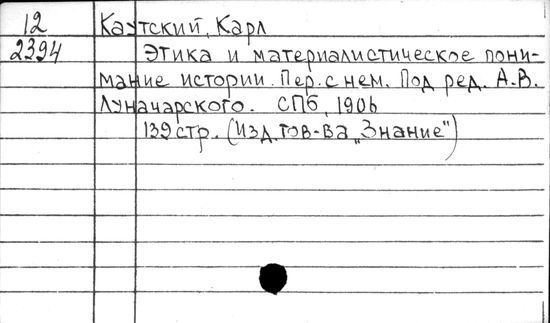 12 Каутский, Карл
2394 Этика и материалистическое пони-
мание истории. Пер. с нем. Под ред. А.В.
Луначарского. СПб, 1906
139 стр. (Изд. тов-ва „Знание")